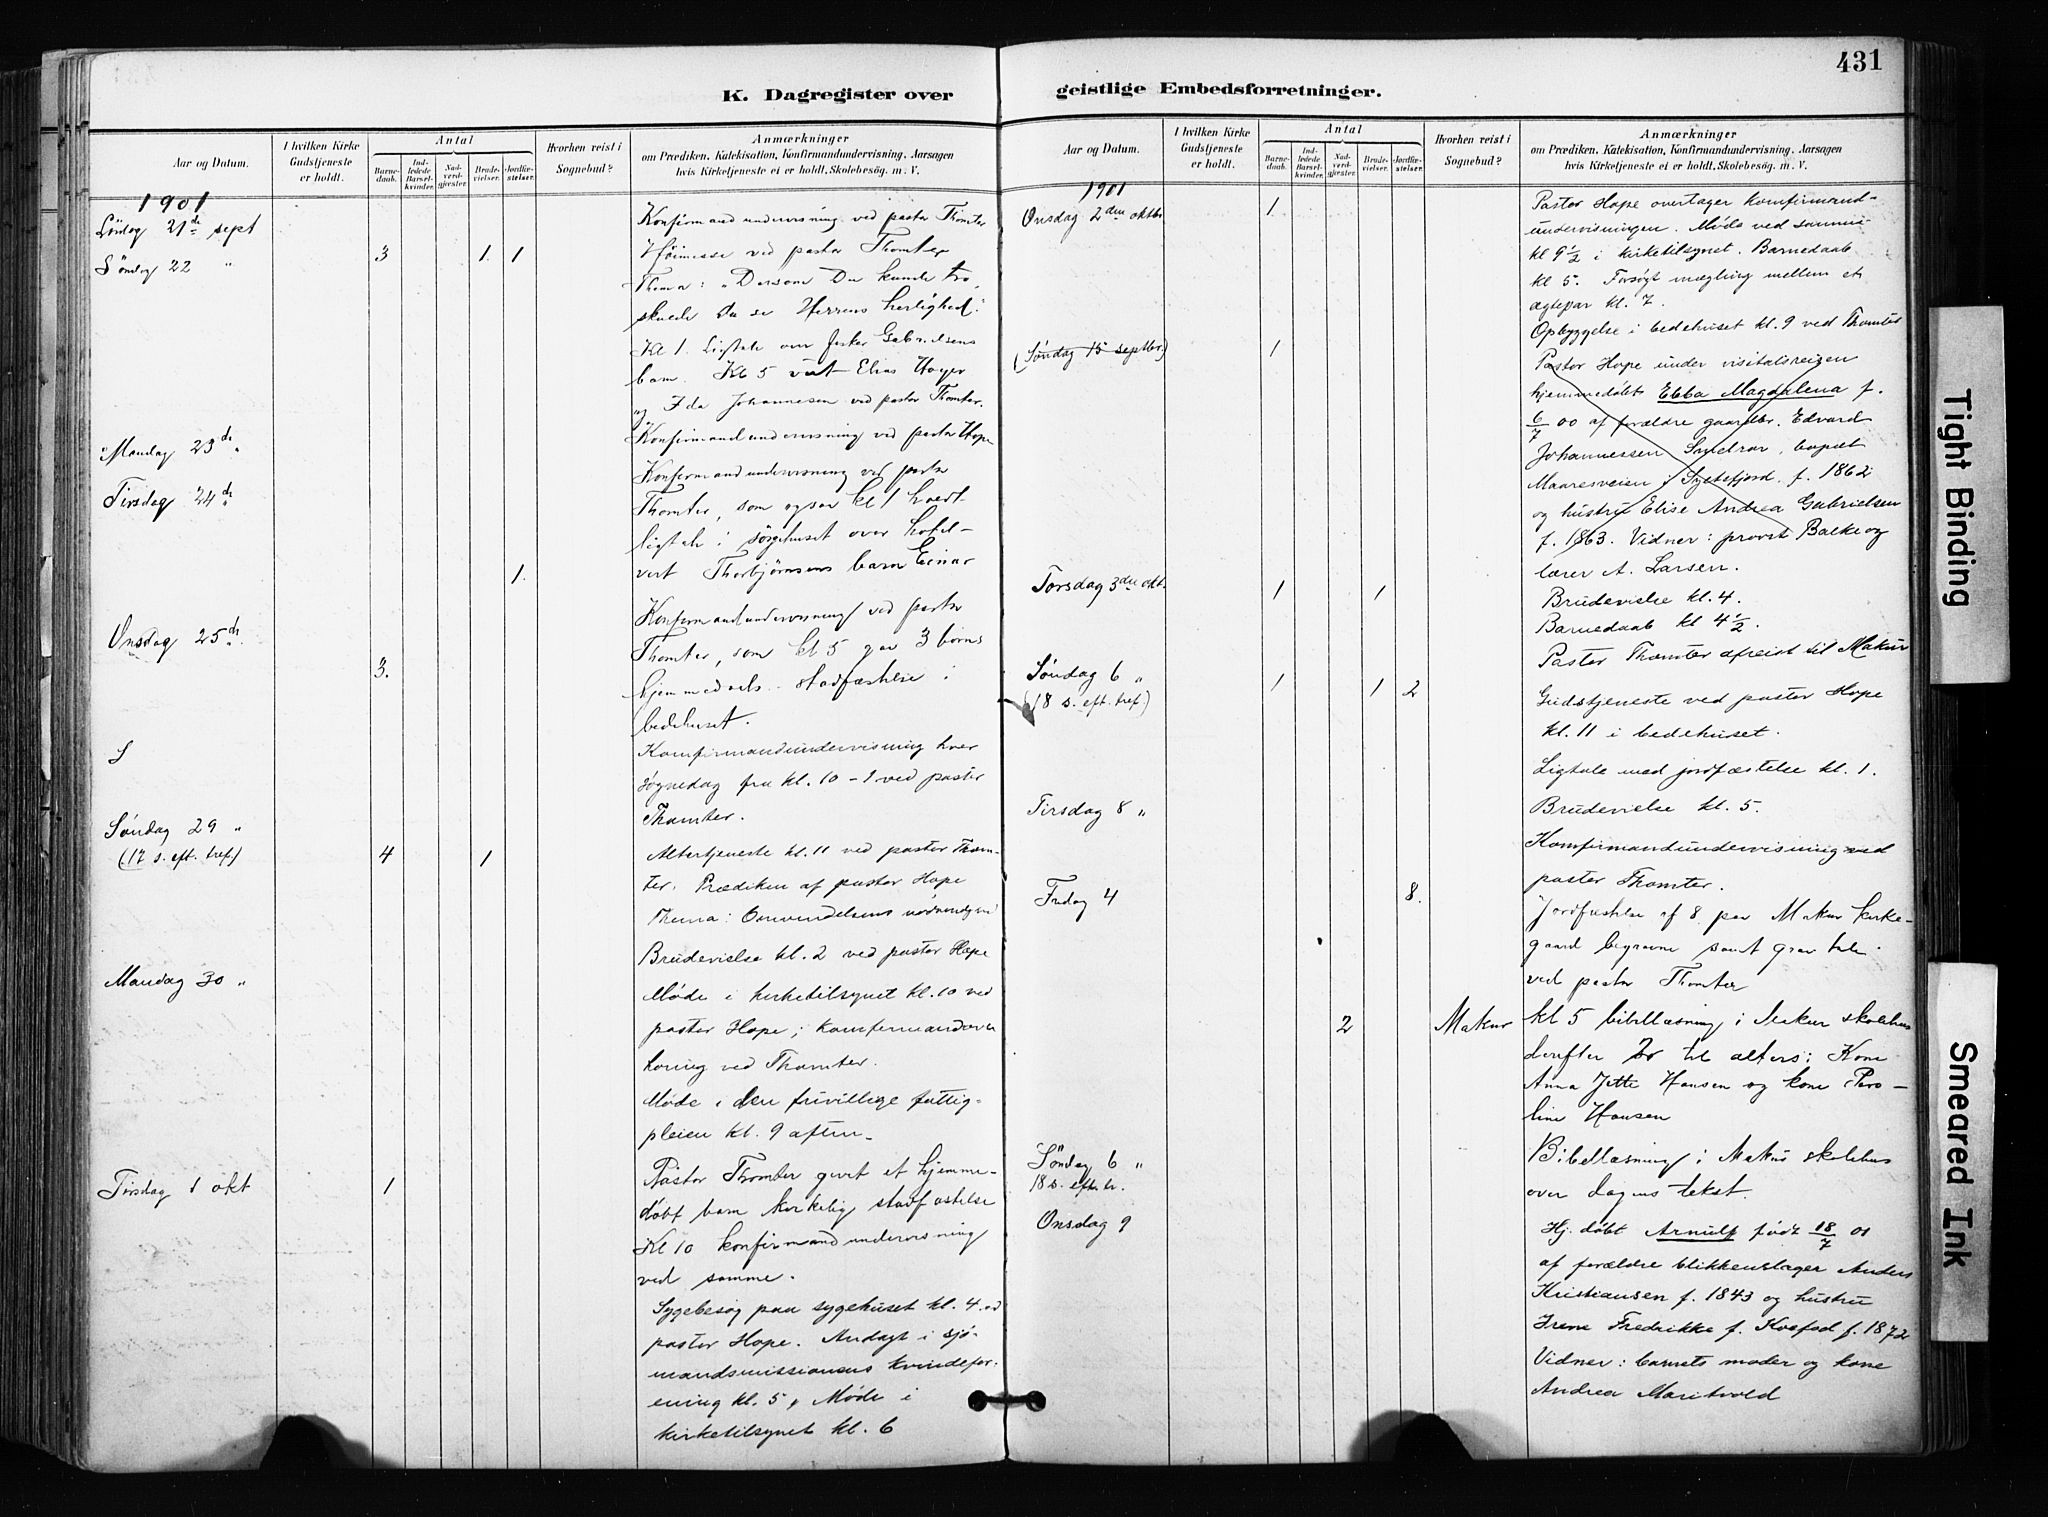 431
K. Dagregister over
geistlige Embedsforretninger.
Aar og Datum.
I hvilken Kirke Gudstjeneste er holdt.
Antal
Barnedaab.
Indledede Barselkvinder.
Nadverdgjester.
Brudevielser.
Jordfæstelser.
Hvorhen reist i Sognebud?
Anmærkninger
om Prædiken, Katekisation, Konfirmandundervisning, Aarsagen
hvis Kirketjeneste ei er holdt, Skolebesøg. m. V.
1901
Lördag 21de sept
Konfirmandundervisning ved pastor Thomter
Söndag 22 "
3 1 1
Höimesse ved pastor Thomter
Thema: "Dersom Du kunde tro,
skulde du se Herrens herlighed."
Kl 1. Ligtale over fisker Gabrielsens
barn. Kl 5 viet Elias Hoyer
og Ida Johannesen ved pastor Thomter.
Mandag 23de "
Konfirmandundervisning ved pastor Hope
Tirsdag 24de "
Konfirmandundervisning ved pastor
Thomter, som ogsaa kl 1 holdt
ligtale i sörgehuset over hotel-
vert Thorbjörnsens barn Einar
1.
Onsdag 25de "
Konfirmandundervisning ved pastor
Thomter, som kl 5 gav 3 börns
3.
hjemmedaabs stadfæstelse i
bedehuset.
S
Konfirmandundervisning hver
søgnedag fra kl. 10 - 1 ved pastor
Thomter.
Søndag 29 "
(17 s. eft. tref.)
4 1
Altertjeneste kl. 11 ved pastor Thom-
ter. Prædiken af pastor Hope
Thema: Omvendelsens nødvendighed
Brudevielse kl. 2 ved pastor Hope
Mandag 30 "
Møde i kirketilsynet kl. 10 ved
pastor Hope; konfirmandover
høring ved Thomter.
Møde i den frivillige fattig-
pleien kl. 9 aften.
Tirsdag 1 okt
1
Pastor Thomter givet et hjemme-
döbt barn kirkelig stadfæstelse
Kl 10 konfirmandundervisning
ved samme.
Sygebesøg paa sygehuset kl. 4 ved
pastor Hope. Andagt i sjø-
mandsmissionens kvindefor-
ening kl. 5, Møde i
kirketilsynet kl. 6
Aar og Datum.
I hvilken Kirke Gudstjeneste er holdt.
Antal
Barnedaab.
Indledede Barselkvinder.
Nadverdgjester.
Brudevielser.
Jordfæstelser.
Hvorhen reist i Sognebud?
Anmærkninger
om Prædiken, Katekisation, Konfirmandundervisning, Aarsagen
hvis Kirketjeneste ei er holdt, Skolebesøg. m. V.
1901
Onsdag 2den oktbr.
1
Pastor Hope overtager konfirmand-
undervisningen. Møde ved samme
kl 9 1/2 i kirketilsynet. Barnedaab
kl 5. Forsøgt mægling mellem et
ægtepar kl. 7.
Opbyggelse i bedehuset kl. 9 ved Thomter
(Søndag 15 septbr.)
1
Pastor Hope under visitatsreisen
hjemmedøbt Ebba Magdalena f.
6/7 00 af forældre gaardbr. Edvard
Johannessen bopæl
i Syltefjord. f. 1862
og hustru Elise Andrea Gabrielsen
f. 1863. Vidner: provst Balke og
lærer A. Larsen.
Torsdag 3die okt.
1 1
Brudevielse kl. 4.
Barnedaab kl 4 1/2.
Pastor Thomter afreist til Makur
Søndag 6 "
(18 s. eft. tref.)
1 1 2
Gudstjeneste ved pastor Hope
kl. 11 i bedehuset.
Ligtale med jordfæstelse kl. 1.
Brudevielse kl. 5.
Tirsdag 8 "
Konfirmandundervisning ved
pastor Thomter.
Fredag 4
8.
Jordfæstelse af 8 paa Makur kirke-
gaard begravne samt gravtale
ved pastor Thomter
2 Makur
kl 5 bibellæsning i Makur skolehus
derefter 2 til alters: Kone
Anna Jette Hansen og kone Paro-
line Hansen
Söndag 6 "
18 s. efter tr.
Bibellæsning i Makur skolehus
over dagens tekst.
Onsdag 9
Hj. døbt Arnulf født 18/7 01
af forældre blikkenslager Anders
Kristiansen f. 1843 og hustru
Irene Fredrikke f. Kvefod f. 1872
Vidner: barnets moder og kone
Andrea Maritvold
Tight Binding
Smeared Ink